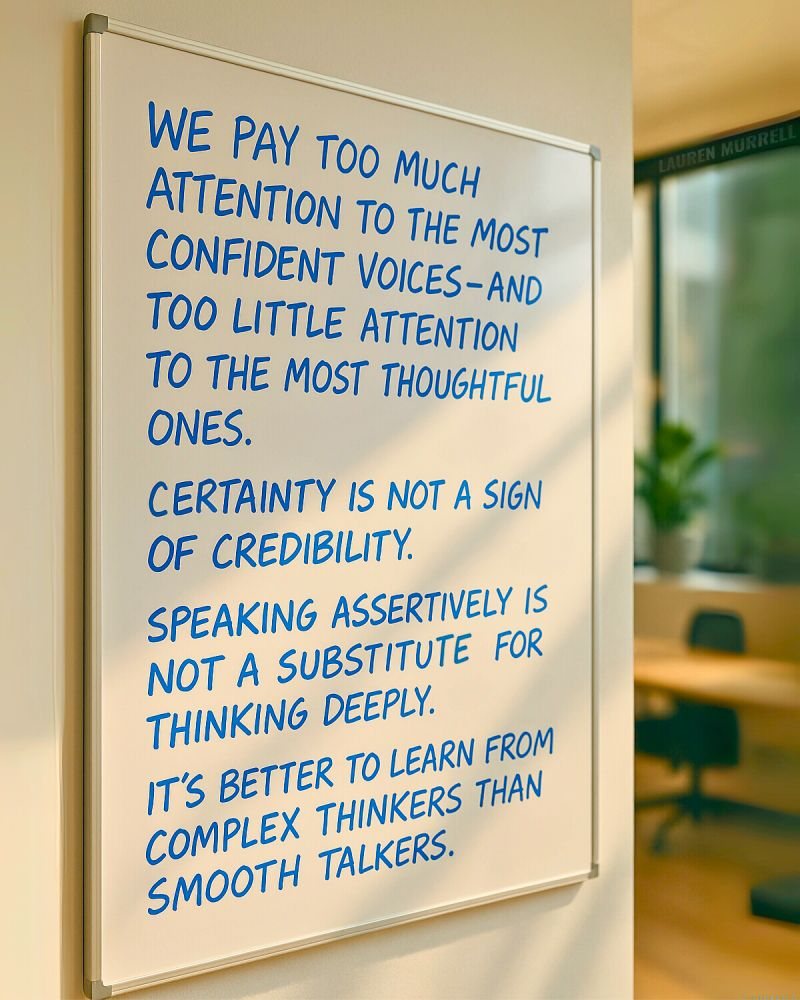 LAUREN MURRELL
WE PAY TOO MUCH
ATTENTION TO THE MOST
CONFIDENT VOICES–AND
TOO LITTLE ATTENTION
TO THE MOST THOUGHTFUL
ONES.
CERTAINTY IS NOT A SIGN
OF CREDIBILITY.
SPEAKING ASSERTIVELY IS
NOT A SUBSTITUTE FOR
THINKING DEEPLY.
IT'S BETTER TO LEARN FROM
COMPLEX THINKERS THAN
SMOOTH TALKERS.